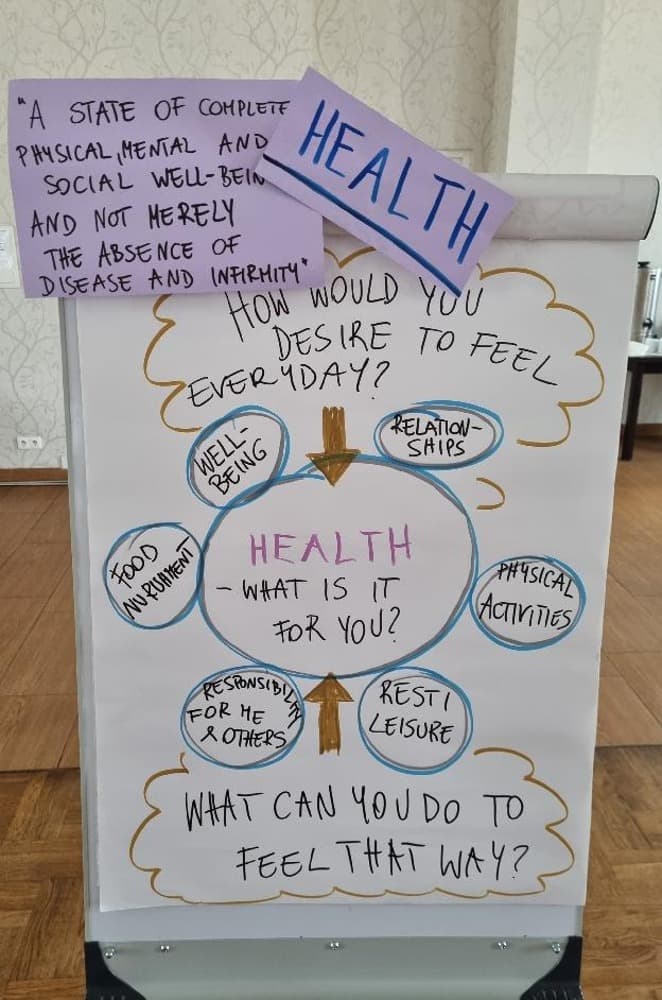 "A STATE OF COMPLETE
PHYSICAL, MENTAL AND
SOCIAL WELL-BEIN
AND NOT MERELY
THE ABSENCE OF
DISEASE AND INFIRMITY"
HEALTH
HOW WOULD YOU
DESIRE TO FEEL
EVERYDAY?
WELL-
BEING
RELATION-
SHIPS
HEALTH
- WHAT IS IT
FOR YOU?
FOOD
NURISHMENT
PHYSICAL
ACTIVITIES
RESPONSIBILITY
FOR ME
& OTHERS
REST/
LEISURE
WHAT CAN YOU DO TO
FEEL THAT WAY?